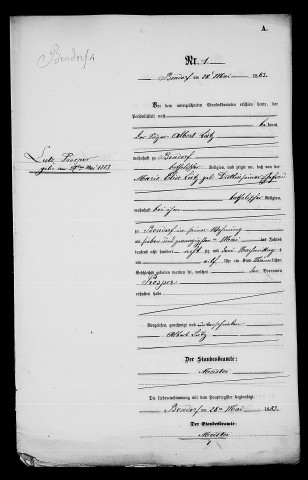 A.
Bendorf
Nr. 1
Bendorf am 28 ten Mai 1883.
Vor dem unterzeichneten Standesbeamten erschien heute, der
Persönlichkeit nach
be kannt,
Albert Lutz
wohnhaft zu Bendorf
katholischer Religion, und zeigte an, daß von der
Marie Lutz geb.
katholischer Religion,
wohnhaft bei ihm
zu Bendorf in seiner Wohnung
am sieben und zwanzigsten Mai des Jahres
tausend acht hundert achtzig und drei Vormittags
um elf Uhr ein Kind männlichen
Geschlechts geboren worden sei, welches den Vornamen
Prosper
erhalten habe
Lutz Prosper
geb. am 27ten Mai 1883
Vorgelesen, genehmigt und unterschrieben
Albert Lutz
Der Standesbeamte:
Die Uebereinstimmung mit dem Hauptregister beglaubigt.
Bendorf am 28 ten Mai 1883.
Der Standesbeamte: